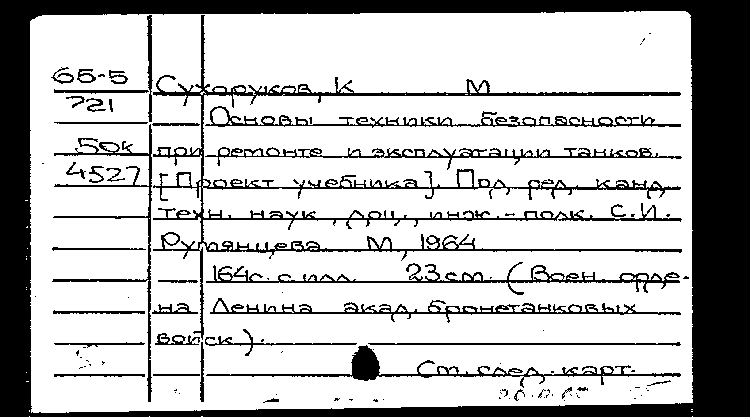 65-5
721
Сухоруков, К М
Основы техники безопасности
50к
при ремонте и эксплуатации танков.
4527
[Проект учебника]. Под ред. канд.
техн. наук, доц., инж.-полк. С.И.
Румянцева. М., 1964
164с. с илл. 23см. (Воен. орде-
на Ленина акад. бронетанковых
войск).
См. след. карт.